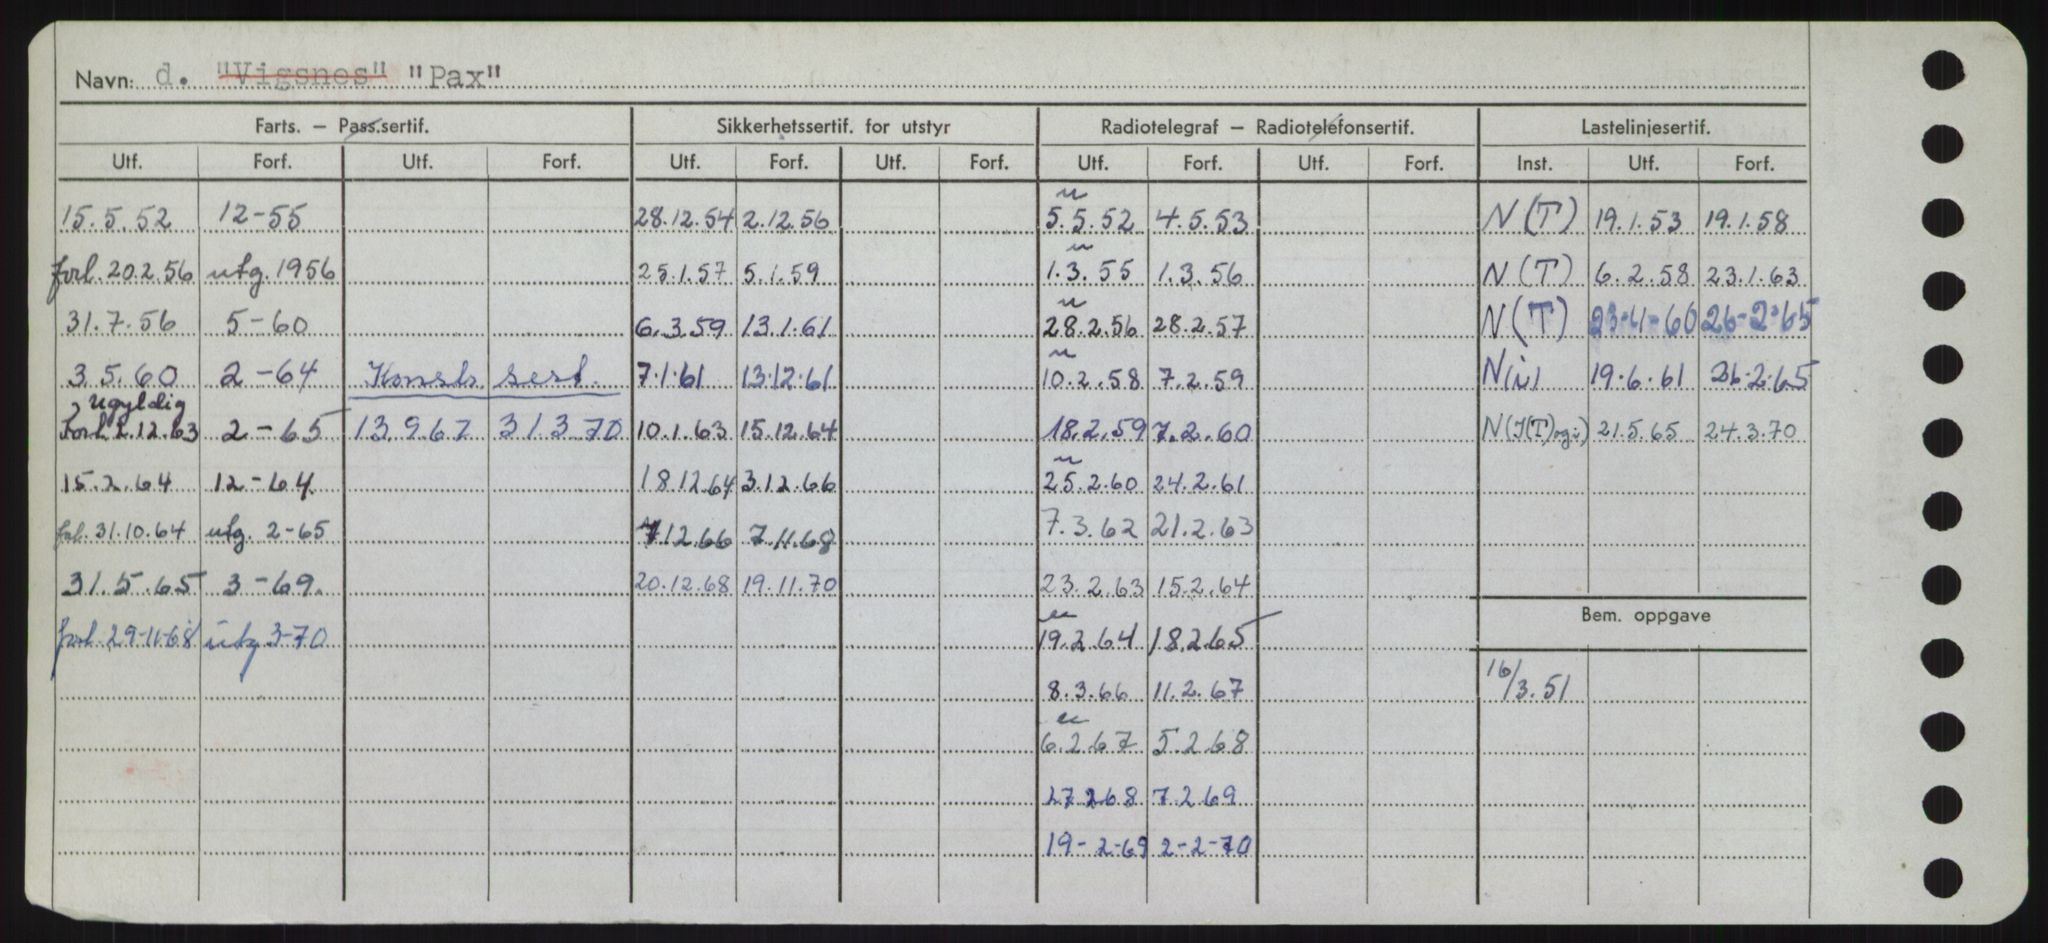 Navn: d. "Vigsnes" "Pax"
Farts. – Pass.sertif. Sikkerhetssertif. for utstyr Radiotelegraf – Radiotelefonsertif. Lastelinjesertif.
Utf. Forf. Utf. Forf. Utf. Forf. Utf. Forf. Utf. Forf. Utf. Forf. Inst. Utf. Forf.
15.5.52 12-55 28.12.54 2.12.56 5.5.52 4.5.53 N(T) 19.1.53 19.1.58
forl. 20.2.56 utg. 1956 25.1.57 5.1.59 1.3.55 1.3.56 N(T) 6.2.58 23.1.63
31.7.56 5-60 6.3.59 13.1.61 28.2.56 28.2.57 N(T) 23-11-60 26-2-65
3.5.60 2-64 Konstr. sert. 7.1.61 13.12.61 10.2.58 7.2.59 N(i) 19.6.61 26.2.65
Ugyldig
Forl. 2.12.63 2-65 13.9.67 31.3.70 10.1.63 15.12.64 18.2.59 7.2.60 N(I(T)og i) 21.5.65 24.3.70
15.2.64 12-64 18.12.64 3.12.66 25.2.60 24.2.61
forl. 31.10.64 utg. 2-65 7.12.66 7.11.68 7.3.62 21.2.63
31.5.65 3-69. 20.12.68 19.11.70 23.2.63 15.2.64
Bem. oppgave
forl. 29-11-68 utg 3-70 19.2.64 18.2.65
16/3.51
8.3.66 11.2.67
6.2.67 5.2.68
27.2.68 7.2.69
19-2-69 2-2-70